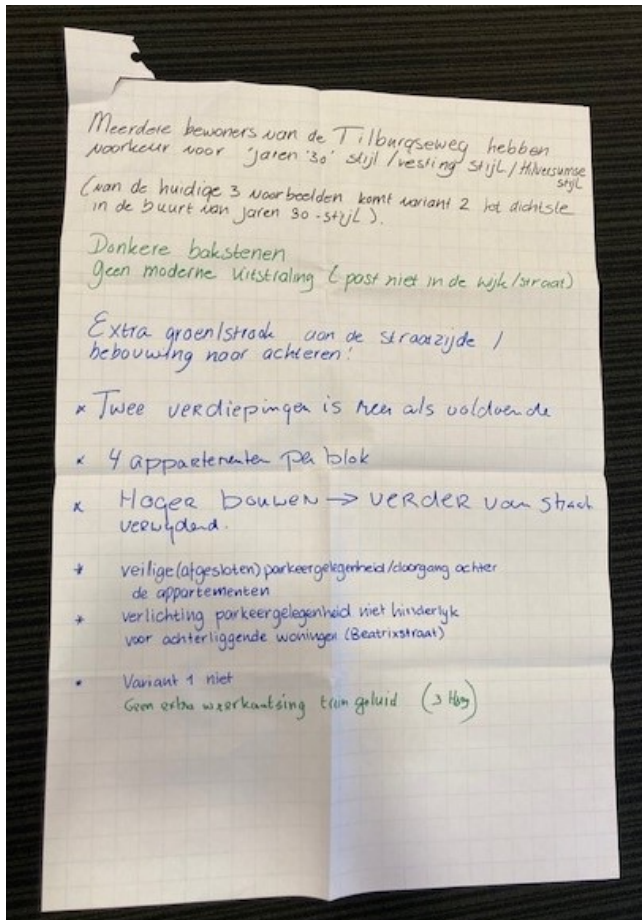 Meerdere bewoners van de Tilburgseweg hebben
voorkeur voor 'jaren '30' stijl / vesting stijl / Hilversumse
stijl
(van de huidige 3 voorbeelden komt variant 2 tot dichtste
in de buurt van jaren 30-stijl).
Donkere bakstenen
Geen moderne uitstraling (past niet in de wijk/straat)
Extra groen/strook aan de straatzijde /
bebouwing naar achteren!
* Twee verdiepingen is meer als voldoende
* 4 appartementen per blok
* Hoger bouwen → verder van straat
verwijderd.
* veilige (afgesloten) parkeergelegenheid/doorgang achter
de appartementen
* verlichting parkeergelegenheid niet hinderlijk
voor achterliggende woningen (Beatrixstraat)
* Variant 1 niet
Geen extra weerkaatsing trein geluid (3